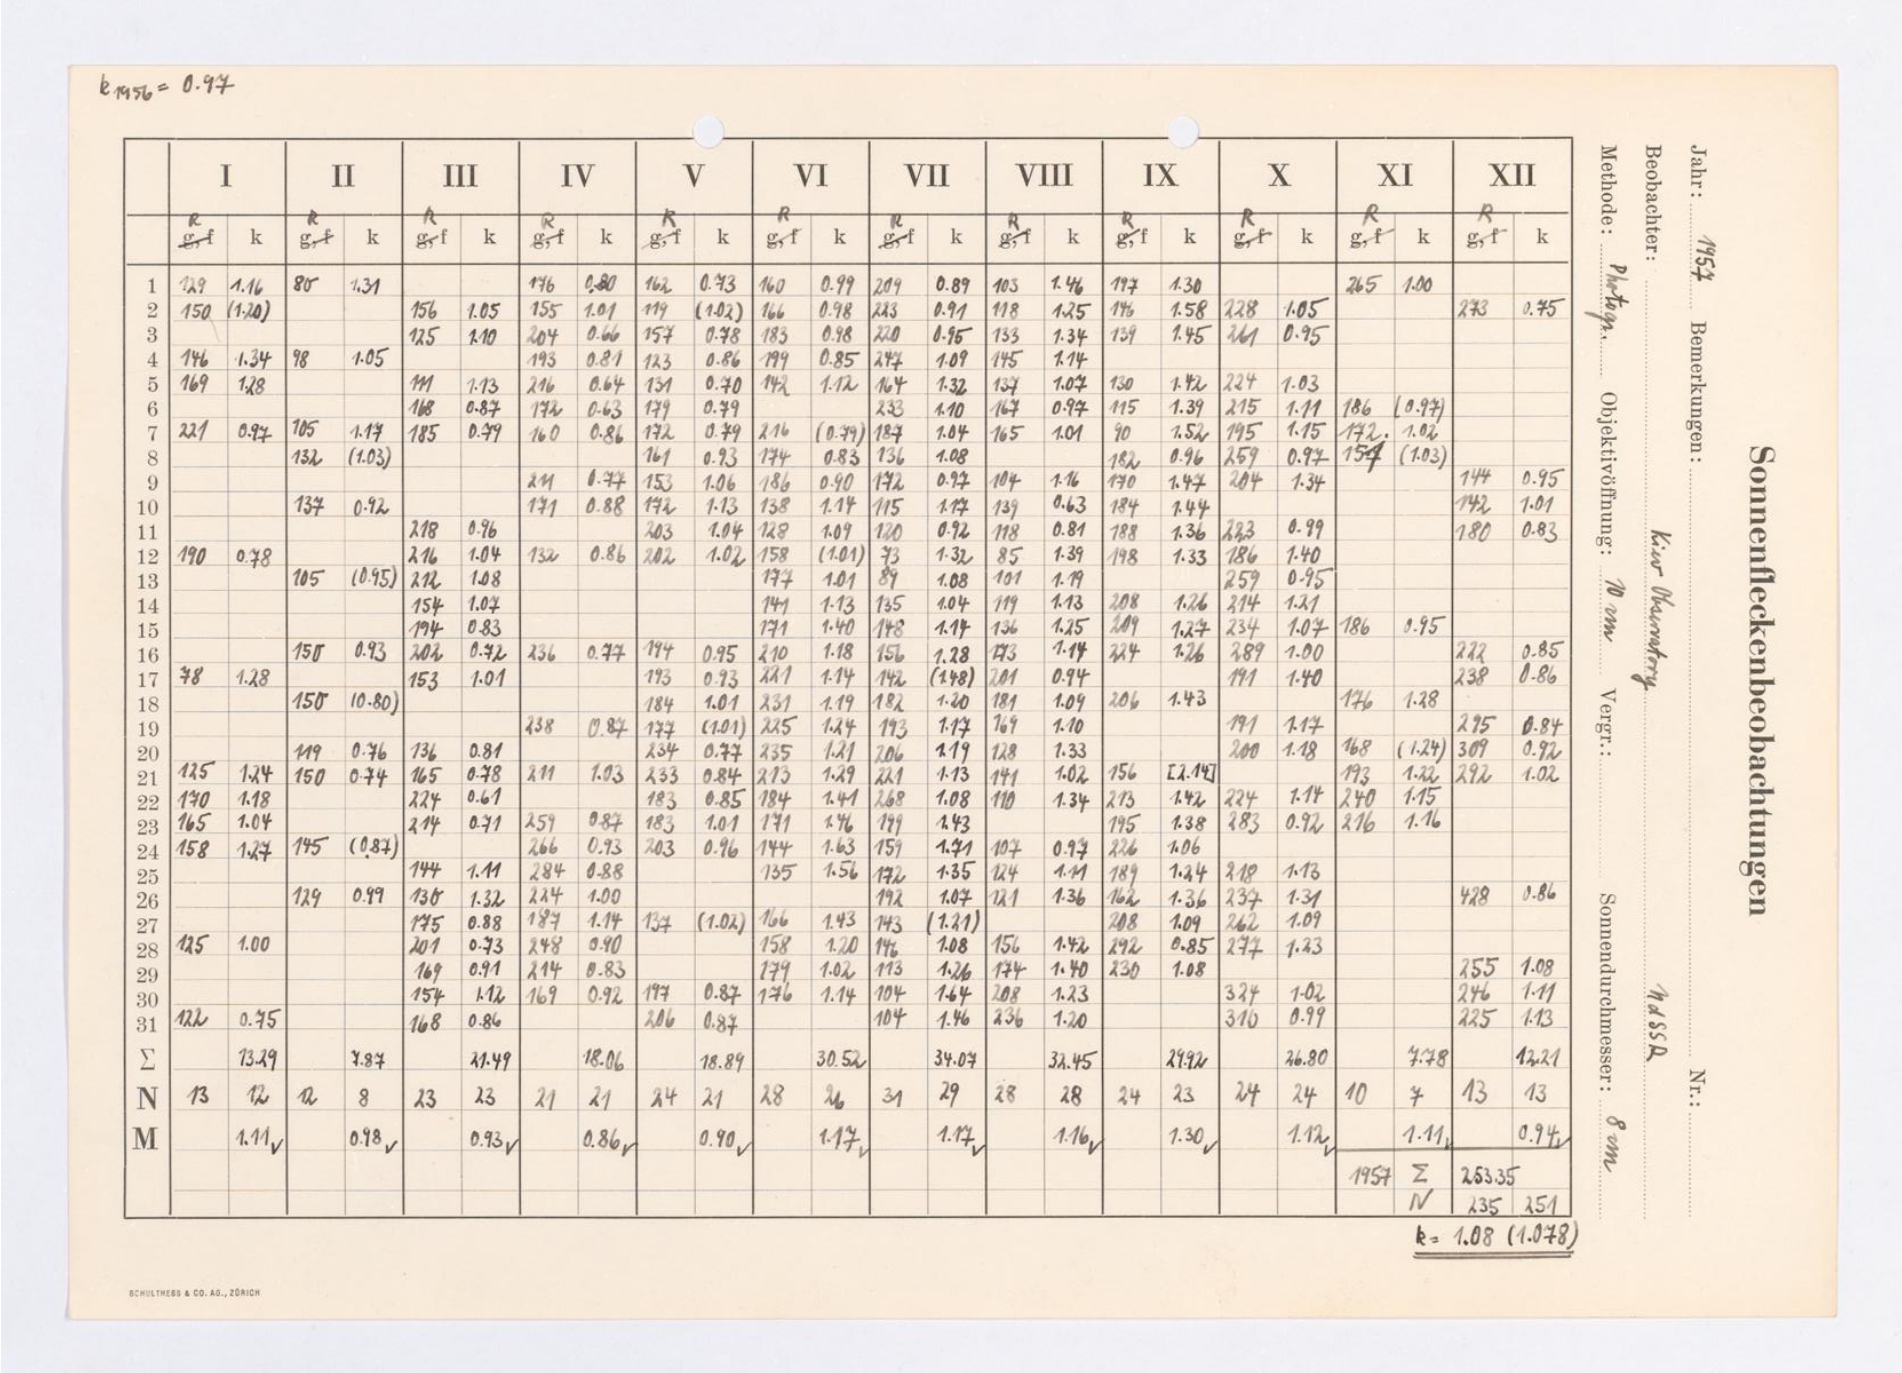 k1956 = 0.97
I II III IV V VI VII VIII IX X XI XII
R R R R R R R R R R R R
g, f k g, f k g, f k g, f k g, f k g, f k g, f k g, f k g, f k g, f k g, f k g, f k
1 129 1.16 80 1.31 176 0.80 162 0.73 160 0.99 209 0.89 103 1.46 197 1.30 265 1.00
2 150 (1.20) 156 1.05 155 1.01 119 (1.02) 166 0.98 223 0.91 118 1.25 146 1.58 228 1.05 273 0.75
3 125 1.10 204 0.66 157 0.78 183 0.98 220 0.95 133 1.34 139 1.45 261 0.95
4 146 1.34 98 1.05 193 0.81 123 0.86 199 0.85 247 1.09 145 1.14
5 169 1.28 111 1.13 216 0.64 131 0.70 142 1.12 164 1.32 137 1.07 130 1.42 224 1.03
6 168 0.87 172 0.63 179 0.79 233 1.10 167 0.97 115 1.39 215 1.11 186 (0.97)
7 221 0.97 105 1.17 185 0.79 160 0.86 172 0.79 216 (0.79) 187 1.04 165 1.01 90 1.52 195 1.15 172. 1.02
8 132 (1.03) 161 0.93 174 0.83 136 1.08 182 0.96 259 0.97 157 (1.03)
9 211 0.77 153 1.06 186 0.90 172 0.97 104 1.16 170 1.47 204 1.34 144 0.95
10 137 0.92 171 0.88 172 1.13 138 1.14 115 1.17 139 0.63 184 1.44 142 1.01
11 218 0.96 203 1.04 128 1.09 120 0.92 118 0.81 188 1.36 223 0.99 180 0.83
12 190 0.78 216 1.04 132 0.86 202 1.02 158 (1.01) 73 1.32 85 1.39 198 1.33 186 1.40
13 105 (0.95) 212 1.08 177 1.01 89 1.08 101 1.19 259 0.95
14 154 1.07 141 1.13 135 1.04 119 1.13 208 1.26 214 1.21
15 194 0.83 171 1.40 148 1.14 136 1.25 209 1.27 234 1.07 186 0.95
16 150 0.93 202 0.72 236 0.77 194 0.95 210 1.18 156 1.28 173 1.14 224 1.26 289 1.00 222 0.85
17 78 1.28 153 1.01 193 0.93 221 1.14 142 (1.48) 201 0.94 191 1.40 238 0.86
18 150 (0.80) 184 1.01 231 1.19 182 1.20 181 1.09 206 1.43 176 1.28
19 238 0.87 177 (1.01) 225 1.24 193 1.17 169 1.10 191 1.17 295 0.84
20 119 0.76 136 0.81 234 0.77 235 1.21 206 1.19 128 1.33 200 1.18 168 (1.24) 309 0.92
21 125 1.24 150 0.74 165 0.78 211 1.03 233 0.84 213 1.29 221 1.13 141 1.02 156 [2.14] 193 1.22 292 1.02
22 170 1.18 224 0.61 183 0.85 184 1.41 268 1.08 110 1.34 213 1.42 224 1.14 240 1.15
23 165 1.04 214 0.71 259 0.87 183 1.01 171 1.46 199 1.43 195 1.38 283 0.92 216 1.16
24 158 1.27 145 (0.87) 266 0.93 203 0.96 144 1.63 159 1.71 107 0.97 226 1.06
25 144 1.11 284 0.88 135 1.56 172 1.35 124 1.11 189 1.24 218 1.13
26 129 0.99 130 1.32 224 1.00 192 1.07 121 1.36 162 1.36 237 1.31 428 0.86
27 175 0.88 187 1.14 137 (1.02) 166 1.43 143 (1.21) 208 1.09 262 1.09
28 125 1.00 201 0.73 248 0.90 158 1.20 146 1.08 156 1.42 292 0.85 277 1.23
29 169 0.91 214 0.83 179 1.02 113 1.26 174 1.40 230 1.08 255 1.08
30 154 1.12 169 0.92 197 0.87 176 1.14 104 1.64 208 1.23 324 1.02 246 1.11
31 122 0.75 168 0.86 206 0.87 104 1.46 236 1.20 310 0.99 225 1.13
Σ 13.29 7.87 21.49 18.06 18.89 30.52 34.07 32.45 29.92 26.80 7.78 12.21
N 13 12 12 8 23 23 21 21 24 21 28 26 31 29 28 28 24 23 24 24 10 7 13 13
M 1.11 0.98 0.93 0.86 0.90 1.17 1.17 1.16 1.30 1.12 1.11 0.94
1957 Σ 253.35
N 235 251
k = 1.08 (1.078)
SCHULTHESS & CO. AG., ZÜRICH
Sonnenfleckenbeobachtungen
Jahr: 1957 Bemerkungen: Nr.:
Beobachter: Kiew Observatory UdSSR
Methode: Photogr. Objektivöffnung: 10 cm Vergr.: Sonnendurchmesser: 8 cm